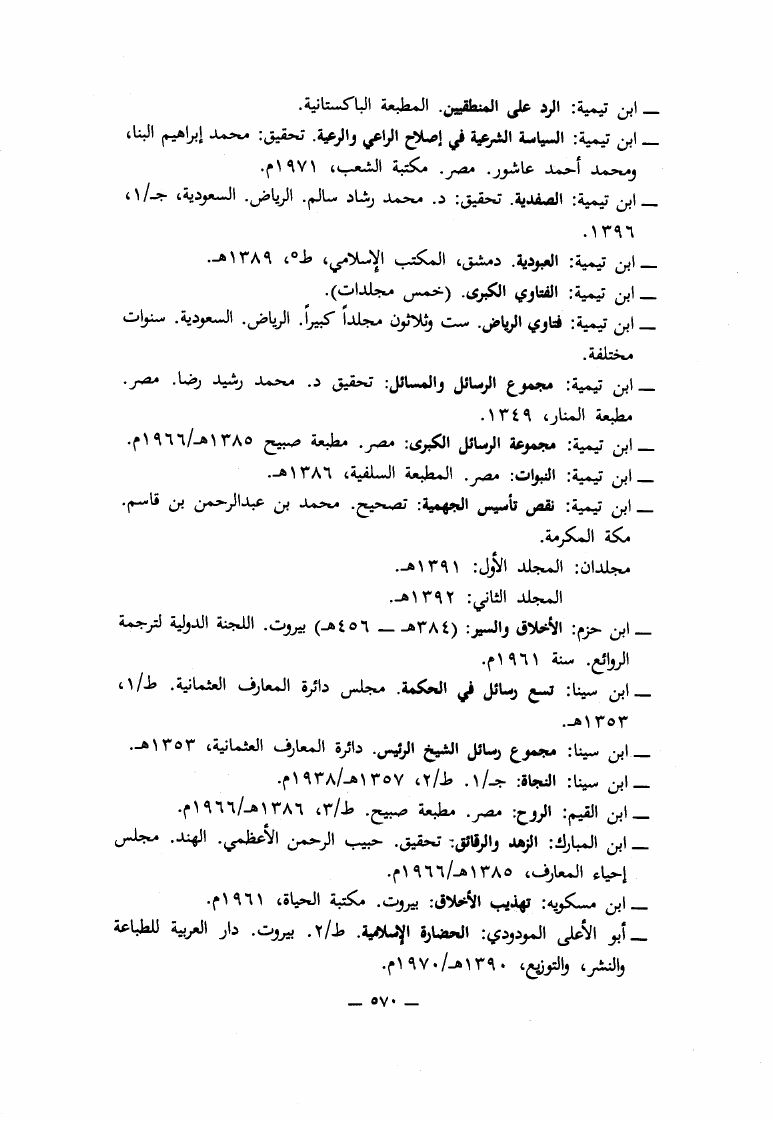 ــ ابن تيمية: الرد على المنطقيين. المطبعة الباكستانية.
ــ ابن تيمية: السياسة الشرعية في إصلاح الراعي والرعية. تحقيق: محمد إبراهيم البنا،
ومحمد أحمد عاشور. مصر. مكتبة الشعب، ١٩٧١م.
ــ ابن تيمية: الصفدية. تحقيق: د. محمد رشاد سالم. الرياض. السعودية، جـ/١،
١٣٩٦.
ــ ابن تيمية: العبودية. دمشق، المكتب الإسلامي، ط٥، ١٣٨٩هـ.
ــ ابن تيمية: الفتاوي الكبرى. (خمس مجلدات).
ــ ابن تيمية: فتاوي الرياض. ست وثلاثون مجلداً كبيراً. الرياض. السعودية. سنوات
مختلفة.
ــ ابن تيمية: مجموع الرسائل والمسائل: تحقيق د. محمد رشيد رضا. مصر.
مطبعة المنار، ١٣٤٩.
ــ ابن تيمية: مجموعة الرسائل الكبرى: مصر. مطبعة صبيح ١٣٨٥هـ/١٩٦٦م.
ــ ابن تيمية: النبوات: مصر. المطبعة السلفية، ١٣٨٦هـ.
ــ ابن تيمية: نقص تأسيس الجهمية: تصحيح. محمد بن عبدالرحمن بن قاسم.
مكة المكرمة.
مجلدان: المجلد الأول: ١٣٩١هـ.
المجلد الثاني: ١٣٩٢هـ.
ــ ابن حزم: الأخلاق والسير: (٣٨٤هـ ــ ٤٥٦هـ) بيروت. اللجنة الدولية لترجمة
الروائع. سنة ١٩٦١م.
ــ ابن سينا: تسع رسائل في الحكمة. مجلس دائرة المعارف العثمانية. ط/١،
١٣٥٣هـ.
ــ ابن سينا: مجموع رسائل الشيخ الرئيس. دائرة المعارف العثمانية، ١٣٥٣هـ.
ــ ابن سينا: النجاة: جـ/١. ط/٢، ١٣٥٧هـ/١٩٣٨م.
ــ ابن القيم: الروح: مصر. مطبعة صبيح. ط/٣، ١٣٨٦هـ/١٩٦٦م.
ــ ابن المبارك: الزهد والرقائق: تحقيق. حبيب الرحمن الأعظمي. الهند. مجلس
إحياء المعارف، ١٣٨٥هـ/١٩٦٦م.
ــ ابن مسكويه: تهذيب الأخلاق: بيروت. مكتبة الحياة، ١٩٦١م.
ــ أبو الأعلى المودودي: الحضارة الإسلامية. ط/٢. بيروت. دار العربية للطباعة
والنشر، والتوزيع، ١٣٩٠هـ/١٩٧٠م.
ــ ٥٧٠ ــ